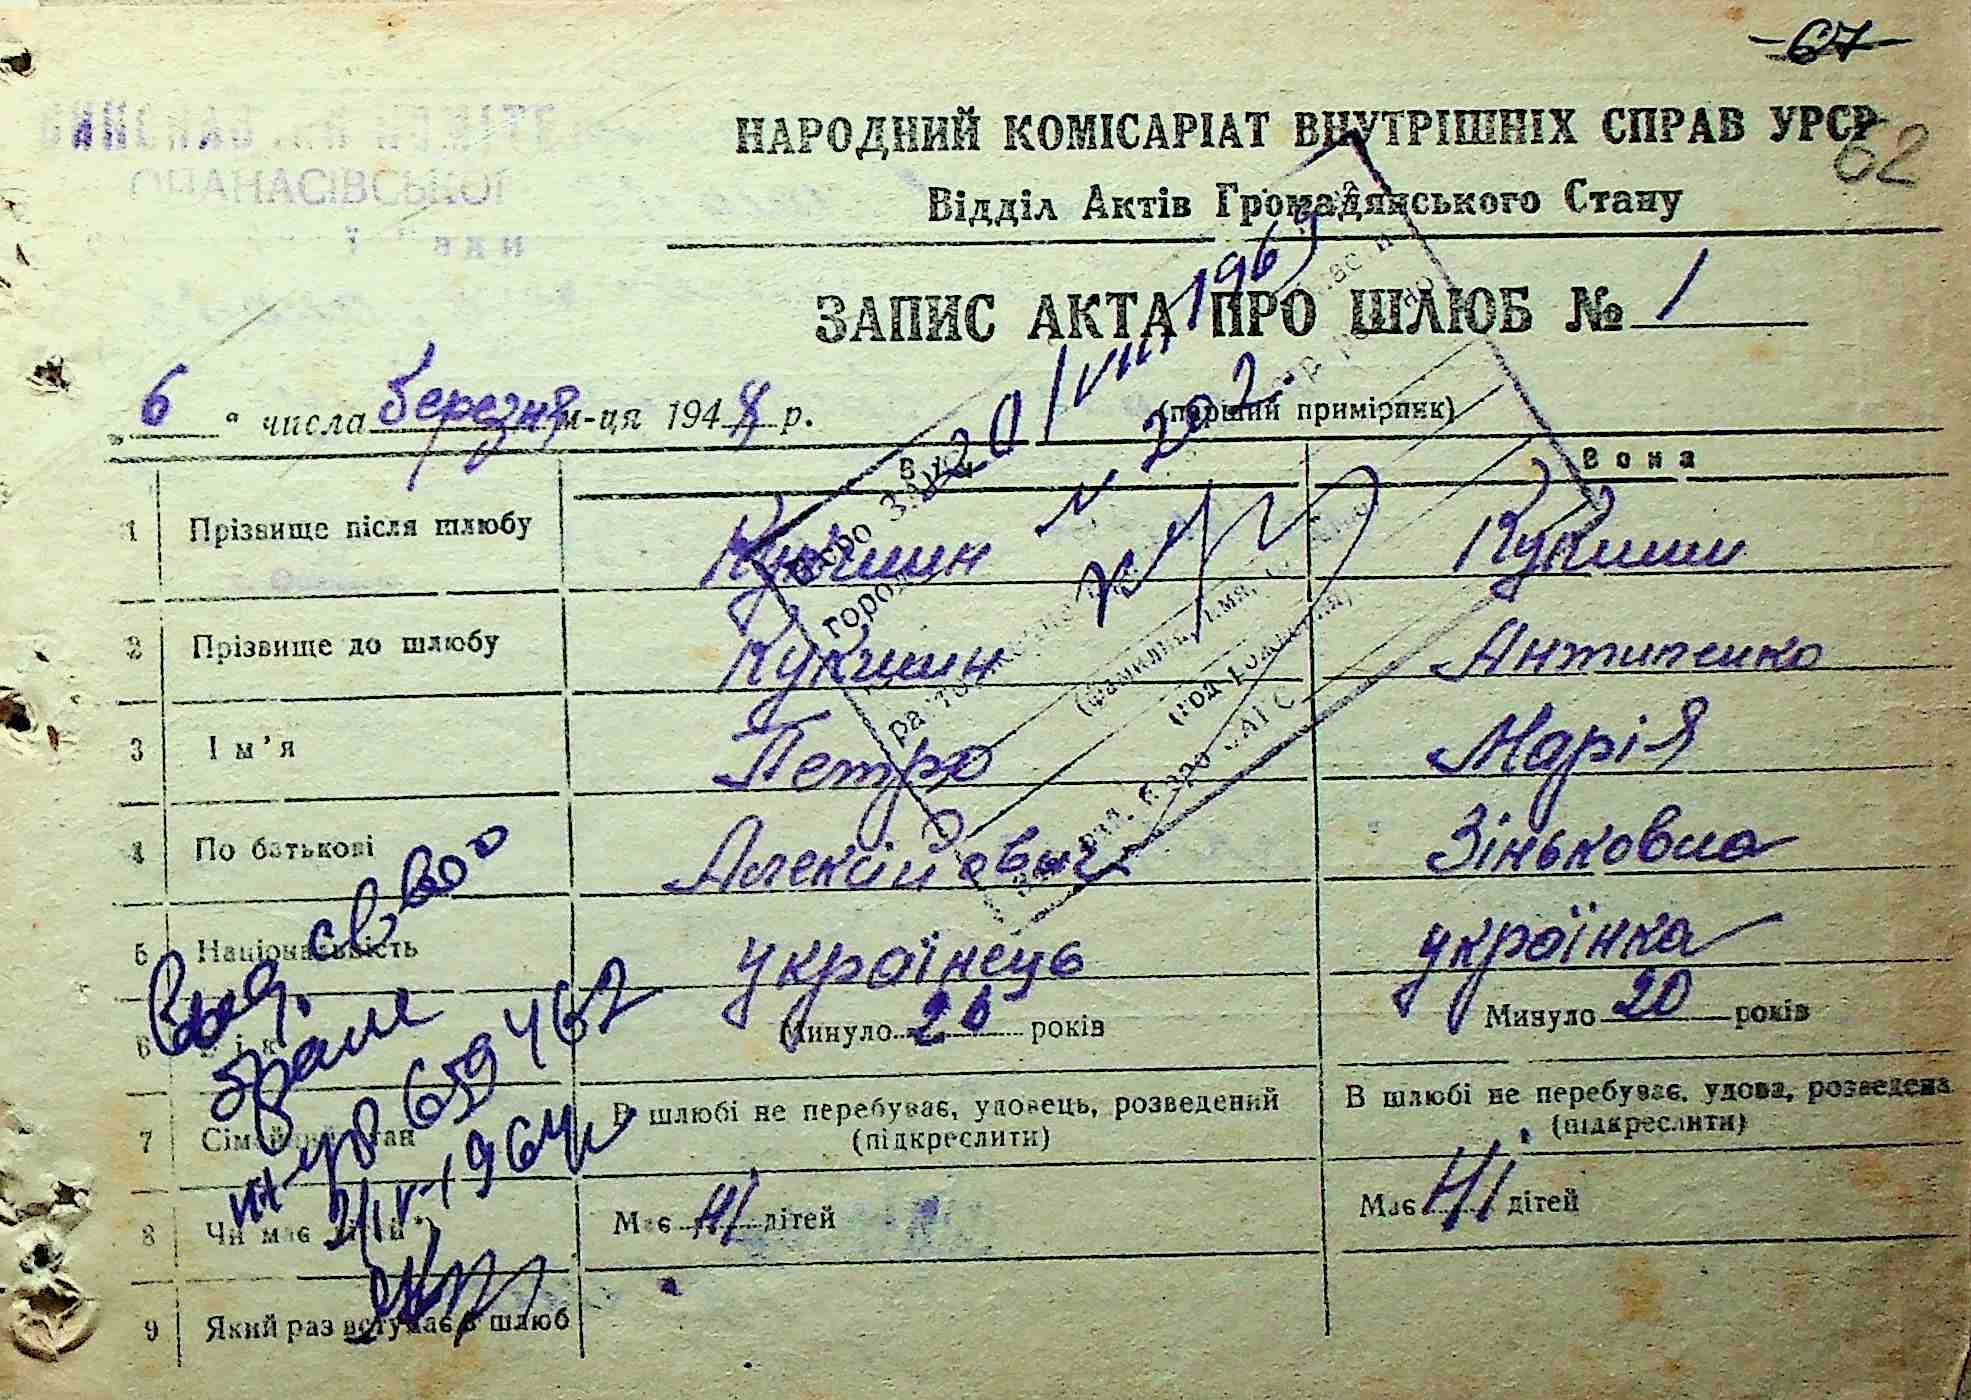 67
НАРОДНИЙ КОМІСАРІАТ ВНУТРІШНІХ СПРАВ УРСР
62
ОПАНАСІВСЬКОЇ
Відділ Актів Громадянського Стану
ЗАПИС АКТА ПРО ШЛЮБ № 1
„ 6 “ числа березня м-ця 194 р.
(перший примірник)
20/VIII 1963
№ 202.
Він Вона
1 Прізвище після шлюбу Кукшин Кукшин
2 Прізвище до шлюбу Кукшин Антипенко
3 Ім’я Петро Марія
4 По батькові Алексійович Зіньковна
5 Національність українець українка
6 Вік Минуло 26 років Минуло 20 років
7 Сімейний стан В шлюбі не перебуває, удовець, розведений (підкреслити) В шлюбі не перебуває, удова, розведена (підкреслити)
8 Чи має дітей*) Має ні дітей Має ні дітей
9 Який раз вступає в шлюб
Выд. св, во о
браке
659462
бюро ЗАГС
город
расторжение
(фамилия, имя,
(год рождения)
Зав. бюро ЗАГС